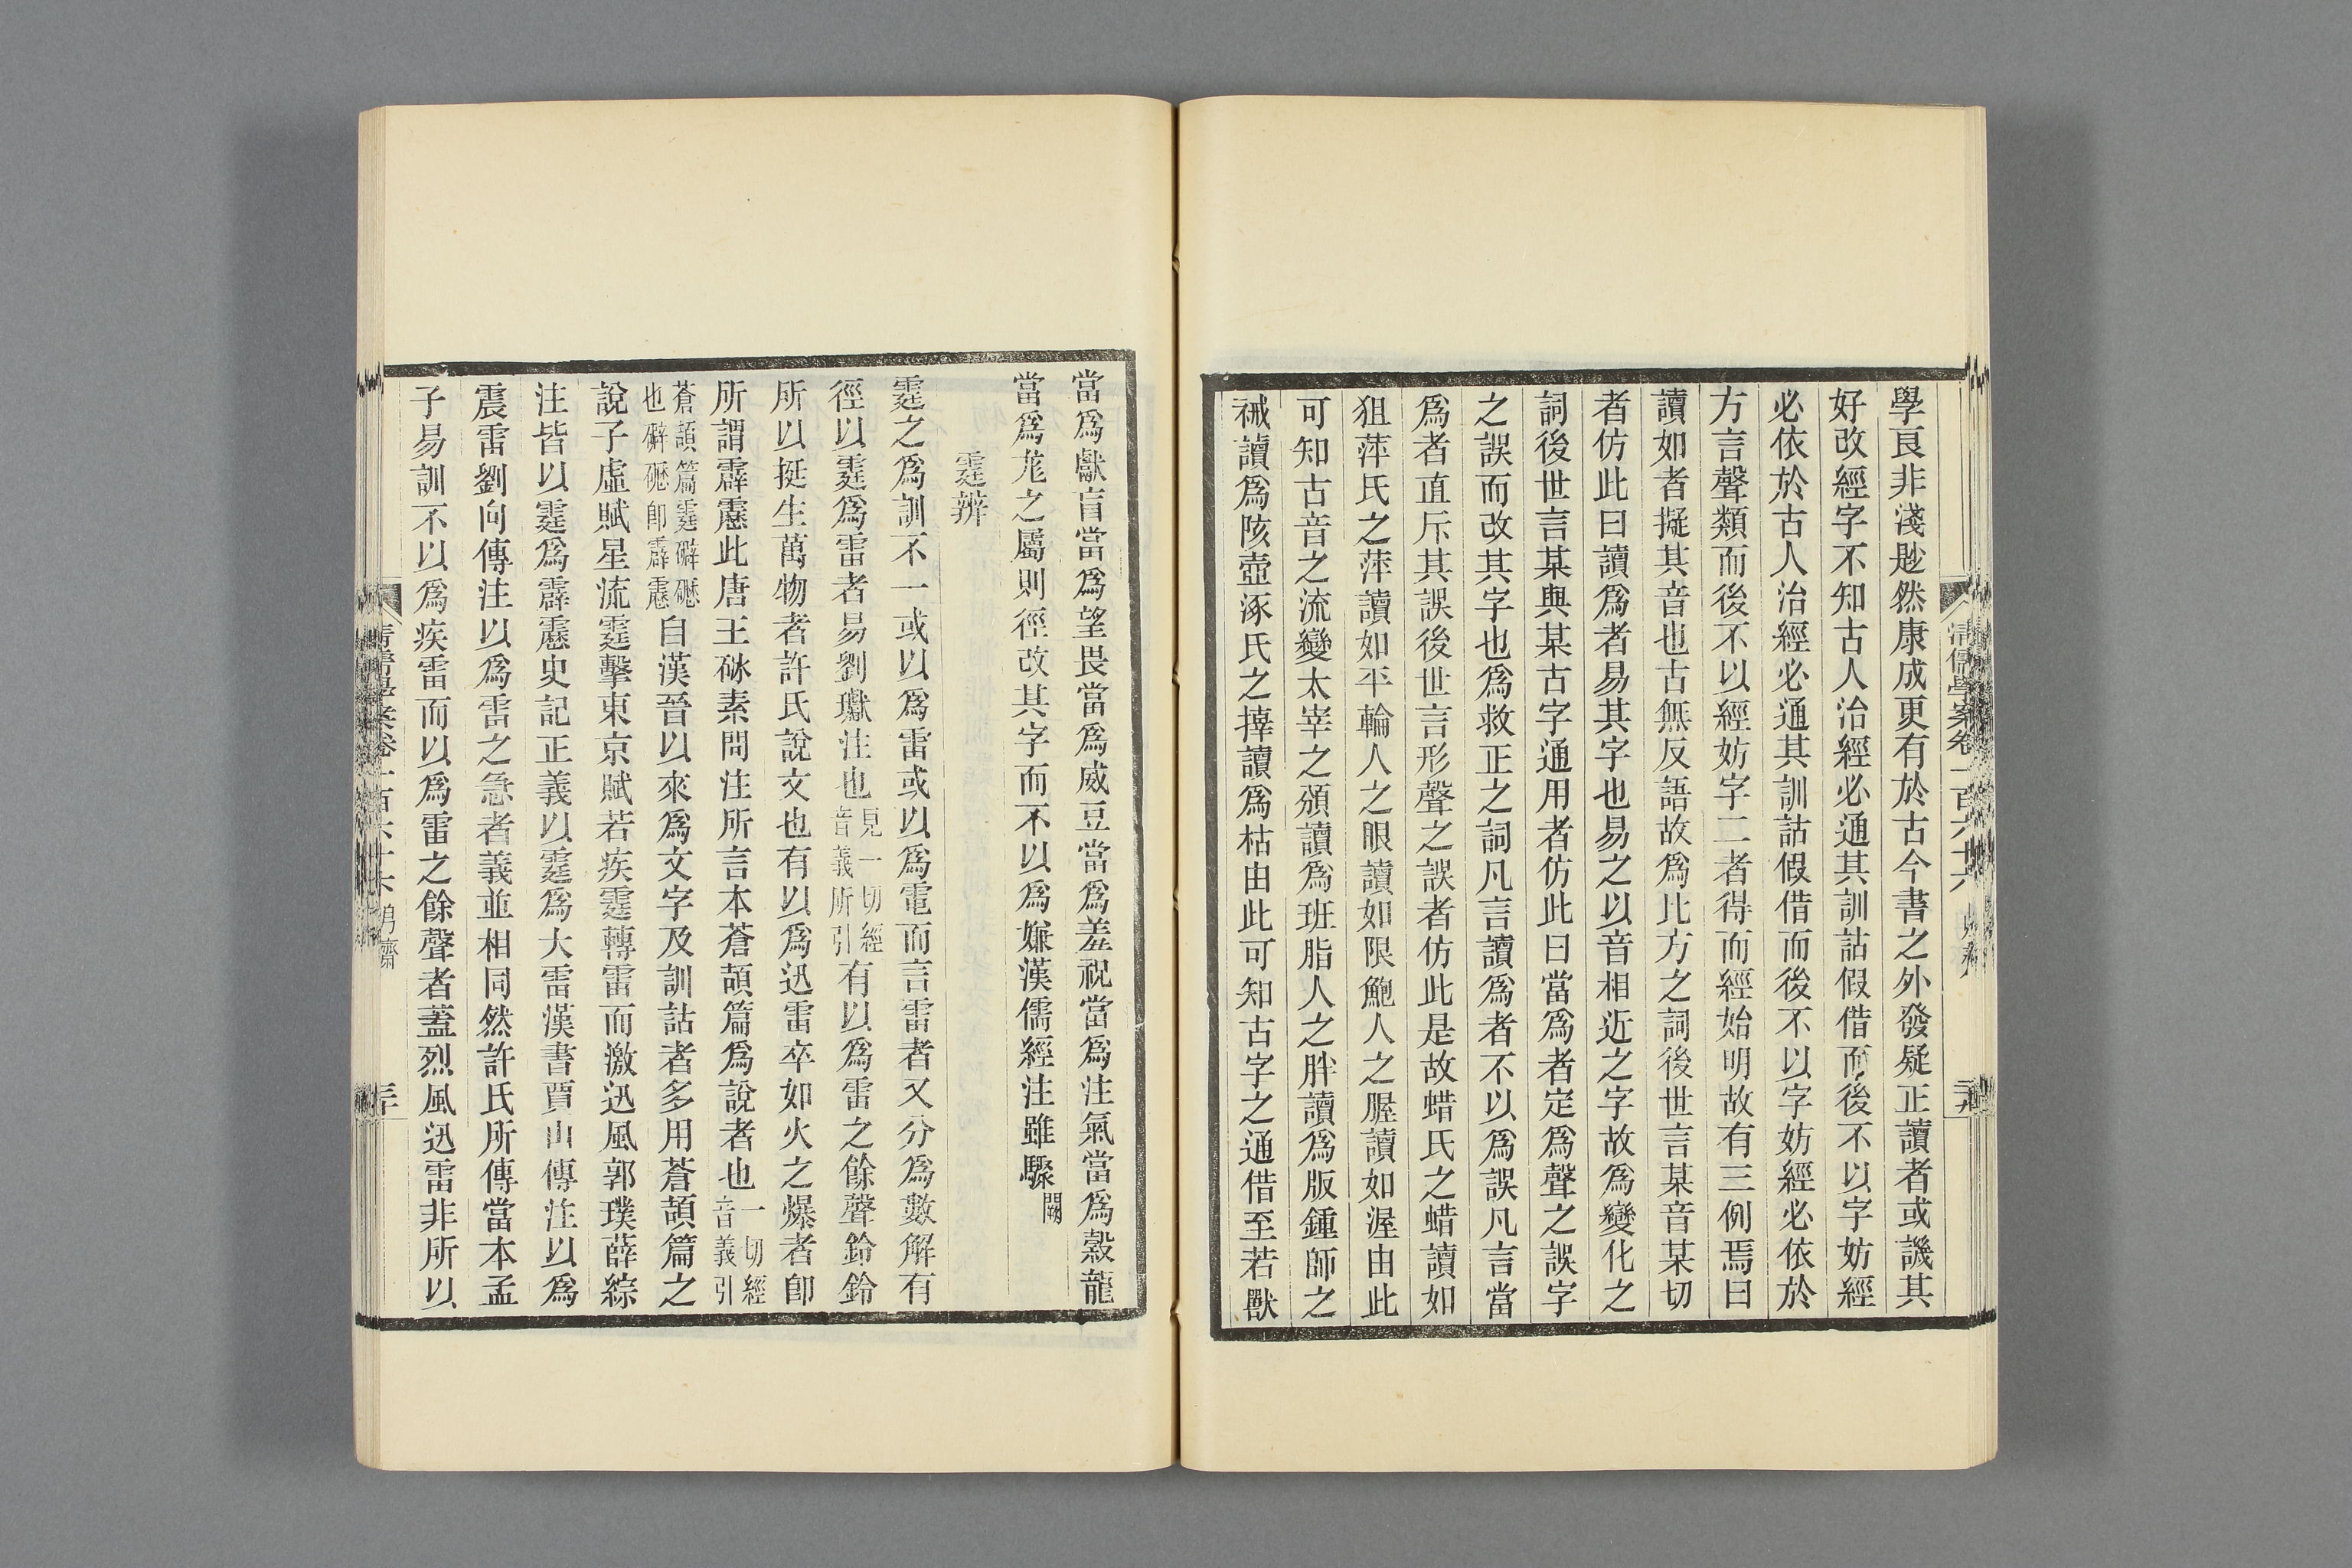 學良非淺尟然康成更有於古今書之外發疑正讀者或譏其
好改經字不知古人治經必通其訓詁假借而後不以字妨經
必依於古人治經必通其訓詁假借而後不以字妨經必依於
方言聲類而後不以經妨字二者得而經始明故有三例焉曰
讀如者擬其音也古無反語故爲比方之詞後世言某音某切
者仿此曰讀爲者易其字也易之以音相近之字故爲變化之
詞後世言某與某古字通用者仿此曰當爲者定爲聲之誤字
之誤而改其字也爲救正之詞凡言讀爲者不以爲誤凡言當
爲者直斥其誤後世言形聲之誤者仿此是故蜡氏之蜡讀如
狙萍氏之萍讀如平輪人之眼讀如限鮑人之腛讀如渥由此
可知古音之流變太宰之頒讀爲班脂人之胖讀爲版鍾師之
祴讀爲陔壺涿氏之㯉讀爲枯由此可知古字之通借至若獸
清儒學案卷一百六十六
當爲獻盲當爲望畏當爲威豆當爲羞祝當爲注氣當爲穀龍
當爲尨之屬則徑改其字而不以爲嫌漢儒經注雖驟闕
霆辨
霆之爲訓不一或以爲雷或以爲電而言雷者又分爲數解有
徑以霆爲雷者易劉瓛注也見一切經音義所引有以爲雷之餘聲鈴鈴
所以挺生萬物者許氏說文也有以爲迅雷卒如火之爆者卽
所謂霹靂此唐王砯素問注所言本蒼頡篇爲說者也一切經音義引
蒼頡篇霆礔礰也礔礰卽霹靂自漢晉以來爲文字及訓詁者多用蒼頡篇之
說子虛賦星流霆擊東京賦若疾霆轉雷而激迅風郭璞薛綜
注皆以霆爲霹靂史記正義以霆爲大雷漢書賈山傳注以爲
震雷劉向傳注以爲雷之急者義並相同然許氏所傳當本孟
子易訓不以爲疾雷而以爲雷之餘聲者蓋烈風迅雷非所以